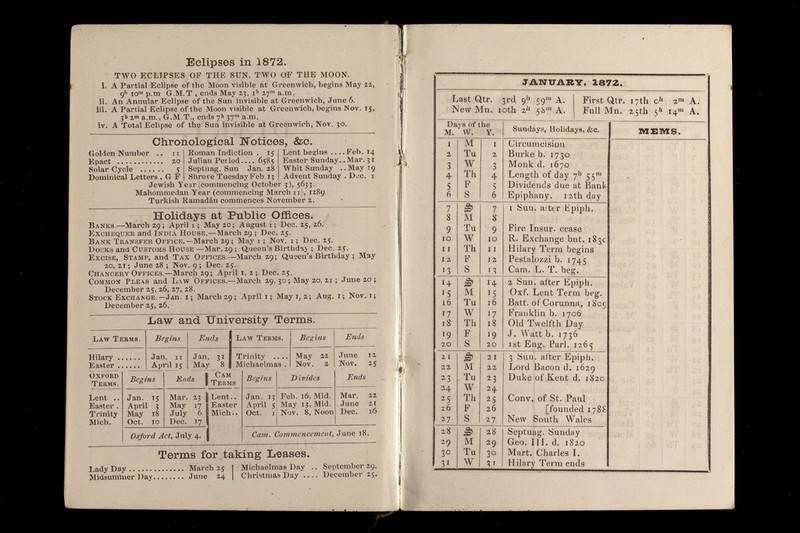 Eclipses in 1872.
TWO ECLIPSES OF THE SUN, TWO OF THE MOON.
i. A Partial Eclipse of the Moon visible at Greenwich, begins May 22,
9h 10m p.m G.M.T, ends May 23, 1h 27m a.m.
ii. An Annular Eclipse of the Sun invisible at Greenwich, June 6.
iii. A Partial Eclipse of the Moon visible at Greenwich, begins Nov. 15,
3h 2m a.m., G.M.T., ends 7h 37m a.m.
iv. A Total Eclipse of the Sun invisible at Greenwich, Nov. 30.
Chronological Notices, &c.
Golden Number .. 11 | Roman Indiction . 15 | Lent begins .... Feb. 14
Epact ........ 20 | Julian Period.... 6585 | Easter Sunday.. Mar. 31
Solar Cycle ...... 5 | Septuag. Sun Jan. 28 | Whit Sunday .. May 19
Dominical Letters . G F | Shrove Tuesday Feb. 13 | Advent Sunday . Dec. 1
Jewish Year (commencing October 3), 5633.
Mahommedan Year (commencing March 11), 1289.
Turkish Ramadân commences November 2.
Holidays at Public Offices.
BANKS.—March 29; April 1; May 20; August 1; Dec. 25, 26.
EXCHEQUER and INDIA HOUSE.—March 29; Dec. 25.
BANK TRANSFER OFFICE.—March 29; May 1; Nov. 1; Dec. 25.
DOCKS and CUSTOMS HOUSE—Mar. 29; Queen's Birthday; Dec. 25.
EXCISE, STAMP, and TAX OFFICES.—March 29; Queen's Birthday; May
20, 21; June 28; Nov. 9; Dec. 25.
CHANCERY OFFICES.—March 29; April 1, 2; Dec. 25.
COMMON PLEAS and LAW OFFICES.—March 29, 30; May 20, 21; June 20;
December 25, 26, 27, 28.
STOCK EXCHANGE.—Jan. 1; March 29; April 1; May 1, 2; Aug. 1; Nov. 1;
December 25, 26.
Law and University Terms.
LAW TERMS. | Begins | Ends | LAW TERMS. | Begins | Ends
Hilary ...... | Jan. 11 | Jan. 31 | Trinity .... | May 22 | June 12
Easter ...... | April 15 | May 8 | Michaelmas . | Nov. 2 | Nov. 25
OXFORD TERMS. | Begins | Ends | CAM TERMS | Begins | Divides | Ends
Lent .. | Jan. 15 | Mar. 23 | Lent.. | Jan. 13 | Feb. 16, Mid. | Mar. 22
Easter . | April 3 | May 17 | Easter | April 5 | May 13, Mid. | June 21
Trinity | May 18 | July 6 | Mich.. | Oct. 1 | Nov. 8, Noon | Dec. 16
Mich. | Oct. 10 | Dec. 17
Oxford Act, July 4. | Cam. Commencement, June 18.
Terms for taking Leases.
Lady Day .............. March 25 | Michaelmas Day .. September 29.
Midsummer Day........ June 24 | Christmas Day .... December 25.
JANUARY, 1872.
Last Qtr. 3rd 9h 59m A. | First Qtr. 17th 0h 2m A.
New Mn. 10th 2h 58m A. | Full Mn. 25th 5h 14m A.
Days of the
M. W. Y. | Sundays, Holidays, &c. | MEMS.
1 M 1 Circumcision
2 Tu 2 Burke b. 1730
3 W 3 Monk d. 1670
4 Th 4 Length of day 7h 55m
5 F 5 Dividends due at Bank
6 S 6 Epiphany. 12th day
7 S 7 1 Sun. after Epiph.
8 M 8
9 Tu 9 Fire Insur. cease
10 W 10 R. Exchange bnt. 183
11 Th 11 Hilary Term begins
12 F 12 Pestalozzi b. 1745
13 S 13 Cam. L. T. beg.
14 S 14 2 Sun. after Epiph.
15 M 15 Oxf. Lent Term beg.
16 Tu 16 Batt. of Corunna, 1809
17 W 17 Franklin b. 1706
18 Th 18 Old Twelfth Day
19 F 19 J. Watt b. 1736
20 S 20 1st Eng. Parl. 1265
21 S 21 3 Sun. after Epiph.
22 M 22 Lord Bacon d. 1629
23 Tu 23 Duke of Kent d. 1820
24 W 24
25 Th 25 Conv. of St. Paul
26 F 26 [founded 1788
27 S 27 New South Wales
28 S 28 Septuag. Sunday
29 M 29 Geo. III. d. 1820
30 Tu 30 Mart. Charles I.
31 W 31 Hilary Term ends